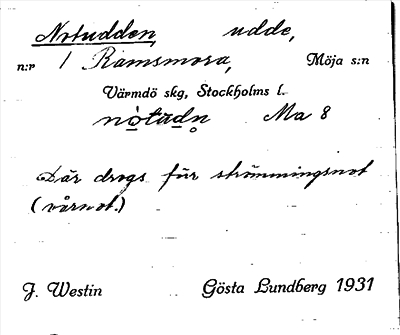 Notudden, udde,
n:r 1 Ramsmora, Möja s:n
Värmdö skg, Stockholms l.
nòtùdn̥ Ma 8
Där drogs för strömmingsnot
(vårnot.)
J. Westin Gösta Lundberg 1931